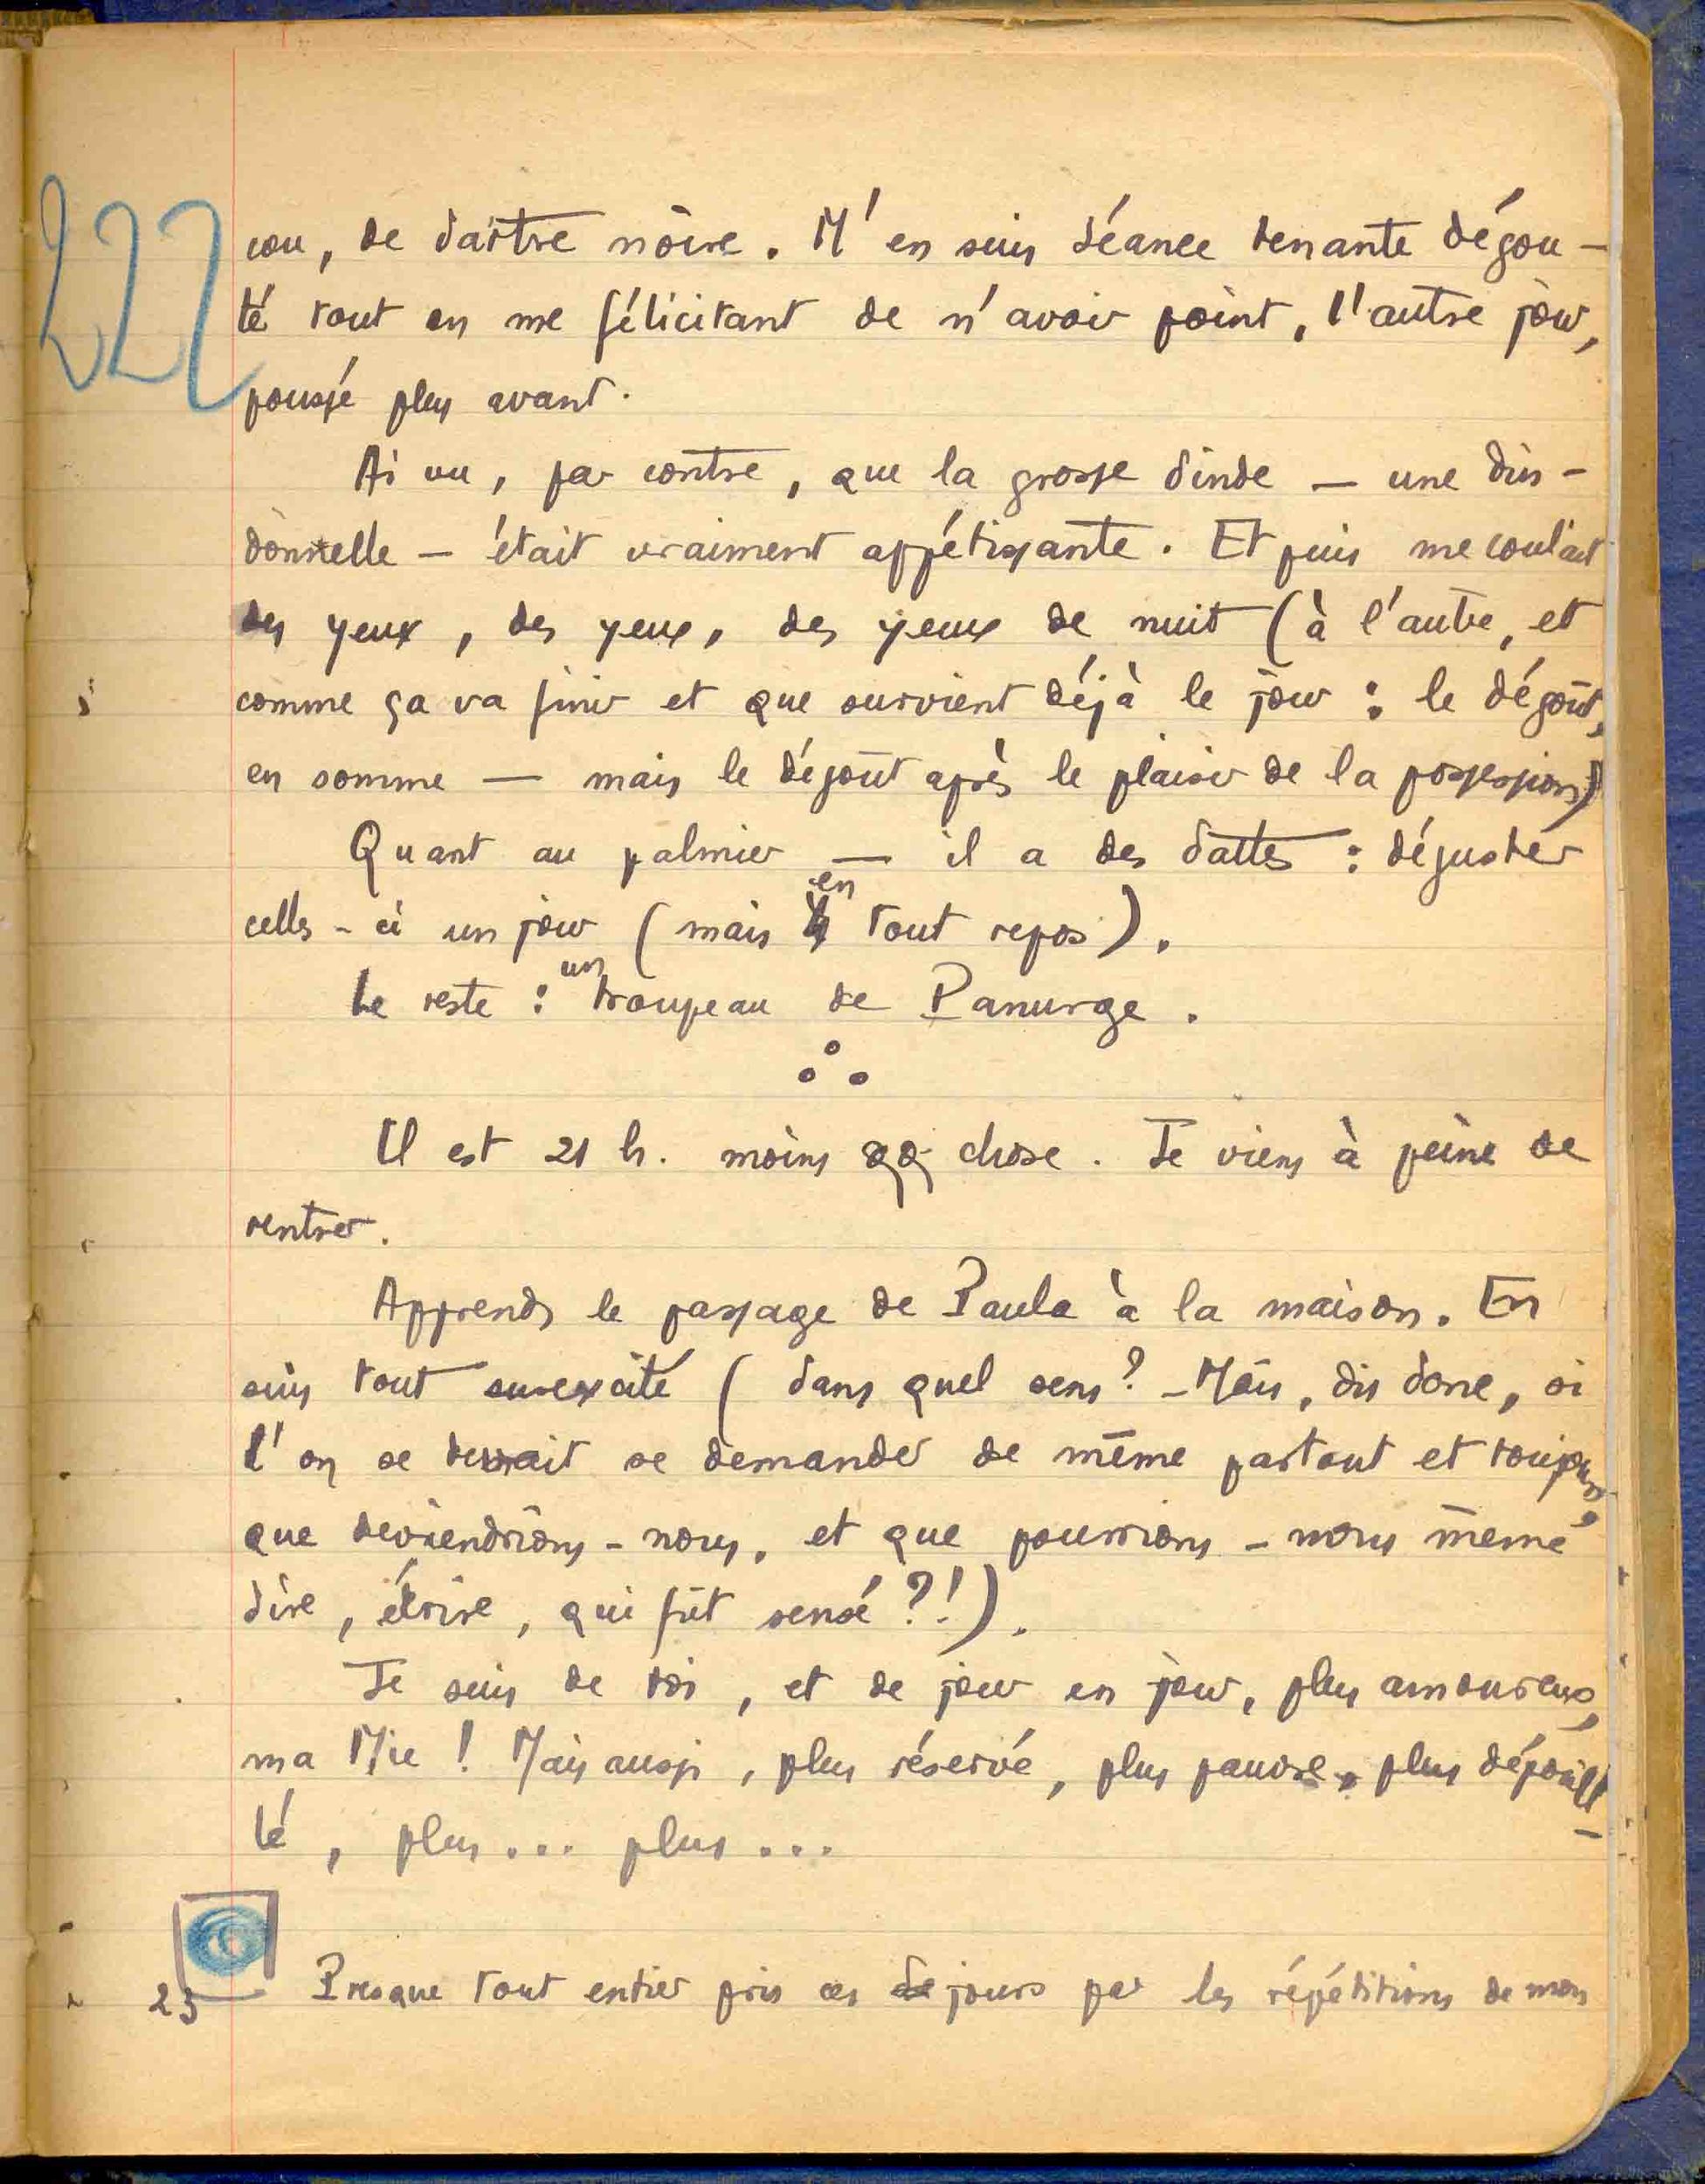 222
cou, de dartre noire. M'en suis séance tenante dégoû-
té tout en me félicitant de n'avoir point, l'autre jour,
poussé plus avant.
Ai vu, par contre, que la grosse dinde — une din-
donnelle — était vraiment appétissante. Et puis me coulait
des yeux, des yeux, des yeux de nuit (à l'autre, et
comme ça va finir et que survient déjà le jour : le dégoût,
en somme — mais le dégoût après le plaisir de la possession)
Quant au palmier — il a des dattes : déguster
celles-ci un jour (mais en tout repos).
Le reste : un troupeau de Panurge.
Il est 21 h. moins qq chose. Je viens à peine de
rentrer.
Apprends le passage de Paula à la maison. En
suis tout surexcité (dans quel sens? - Mais, dis donc, si
l'on se devait se demander de même partout et toujours,
que deviendrions-nous, et que pourrions-nous même
dire, écrire, qui fût sensé ?!).
Je suis de toi, et de jour en jour, plus amoureux,
ma Mie ! Mais aussi, plus réservé, plus pauvre, plus dépouil-
lé, plus... plus...
23 Presque tout entier pris ces jours par les répétitions de mon